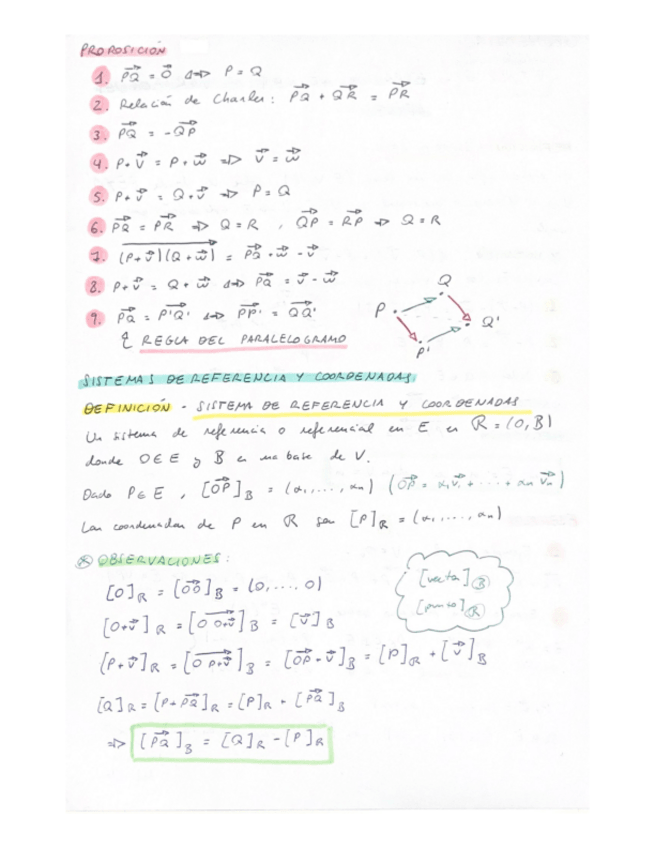 PROPOSICIÓN
1. PQ⃗ = 0⃗ ⇔ P = Q
2. Relación de Charles: PQ⃗ + QR⃗ = PR⃗
3. PQ⃗ = -QP⃗
4. P + v⃗ = P + w⃗ ⇒ v⃗ = w⃗
5. P + v⃗ = Q + v⃗ ⇒ P = Q
6. PQ⃗ = PR⃗ ⇒ Q = R , QP⃗ = RP⃗ ⇒ Q = R
7. (P+v⃗)(Q+w⃗)⃗ = PQ⃗ + w⃗ - v⃗
8. P + v⃗ = Q + w⃗ ⇔ PQ⃗ = v⃗ - w⃗
9. PQ⃗ = P'Q'⃗ ⇔ PP'⃗ = QQ'⃗
REGLA DEL PARALELOGRAMO
P Q Q' P'
SISTEMAS DE REFERENCIA Y COORDENADAS
DEFINICIÓN - SISTEMA DE REFERENCIA Y COORDENADAS
Un sistema de referencia o referencial en E es R = (O, B)
donde O ∈ E y B es una base de V.
Dado P ∈ E , [OP⃗]_B = (α₁, ..., αₙ) (OP⃗ = α₁v₁⃗ + ... + αₙvₙ⃗)
Las coordenadas de P en R son [P]_R = (α₁, ..., αₙ)
* OBSERVACIONES:
[vector] B
[punto] R
[O]_R = [OO⃗]_B = (0, ..., 0)
[O+v⃗]_R = [O O+v⃗]_B = [v⃗]_B
[P+v⃗]_R = [O P+v⃗]_B = [OP⃗ + v⃗]_B = [P]_R + [v⃗]_B
[Q]_R = [P + PQ⃗]_R = [P]_R + [PQ⃗]_B
⇒ [PQ⃗]_B = [Q]_R - [P]_R